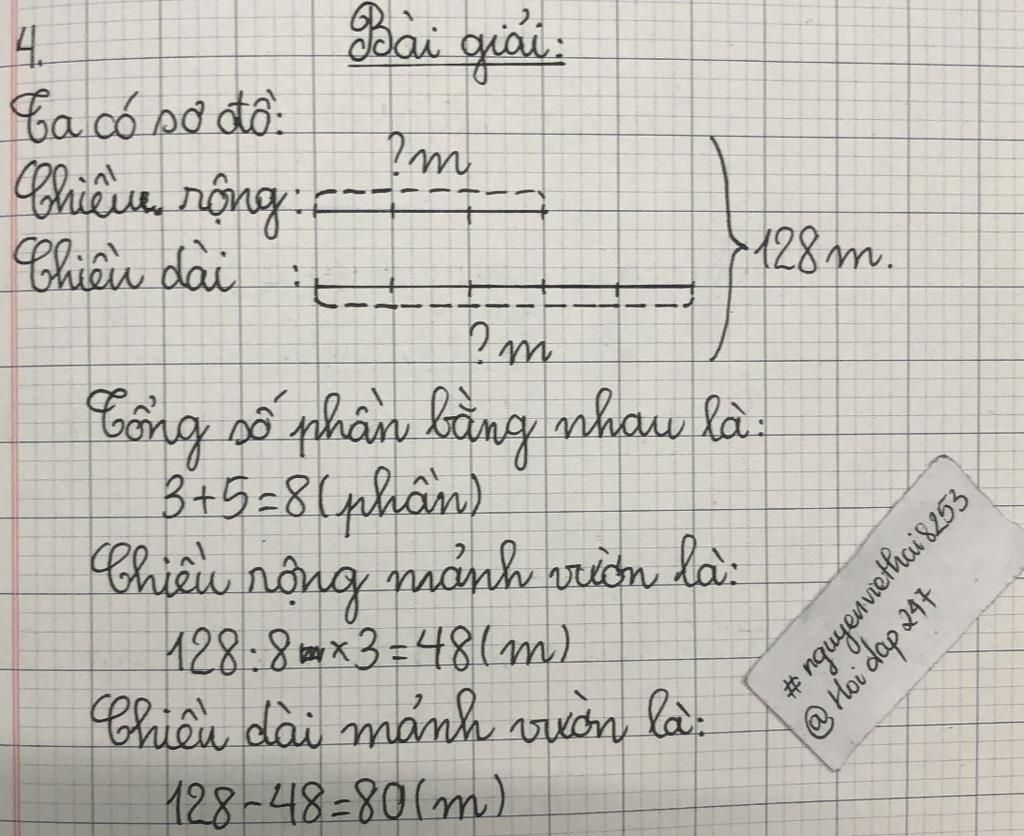 4.
Bài giải:
Ta có sơ đồ:
?m
Chiều rộng:
Chiều dài :
128m.
?m
Tổng số phần bằng nhau là:
3+5=8(phần)
Chiều rộng mảnh vườn là:
128:8 x 3=48(m)
Chiều dài mảnh vườn là:
128-48=80(m)
# nguyenviethai8253
@ Hoi dap 247